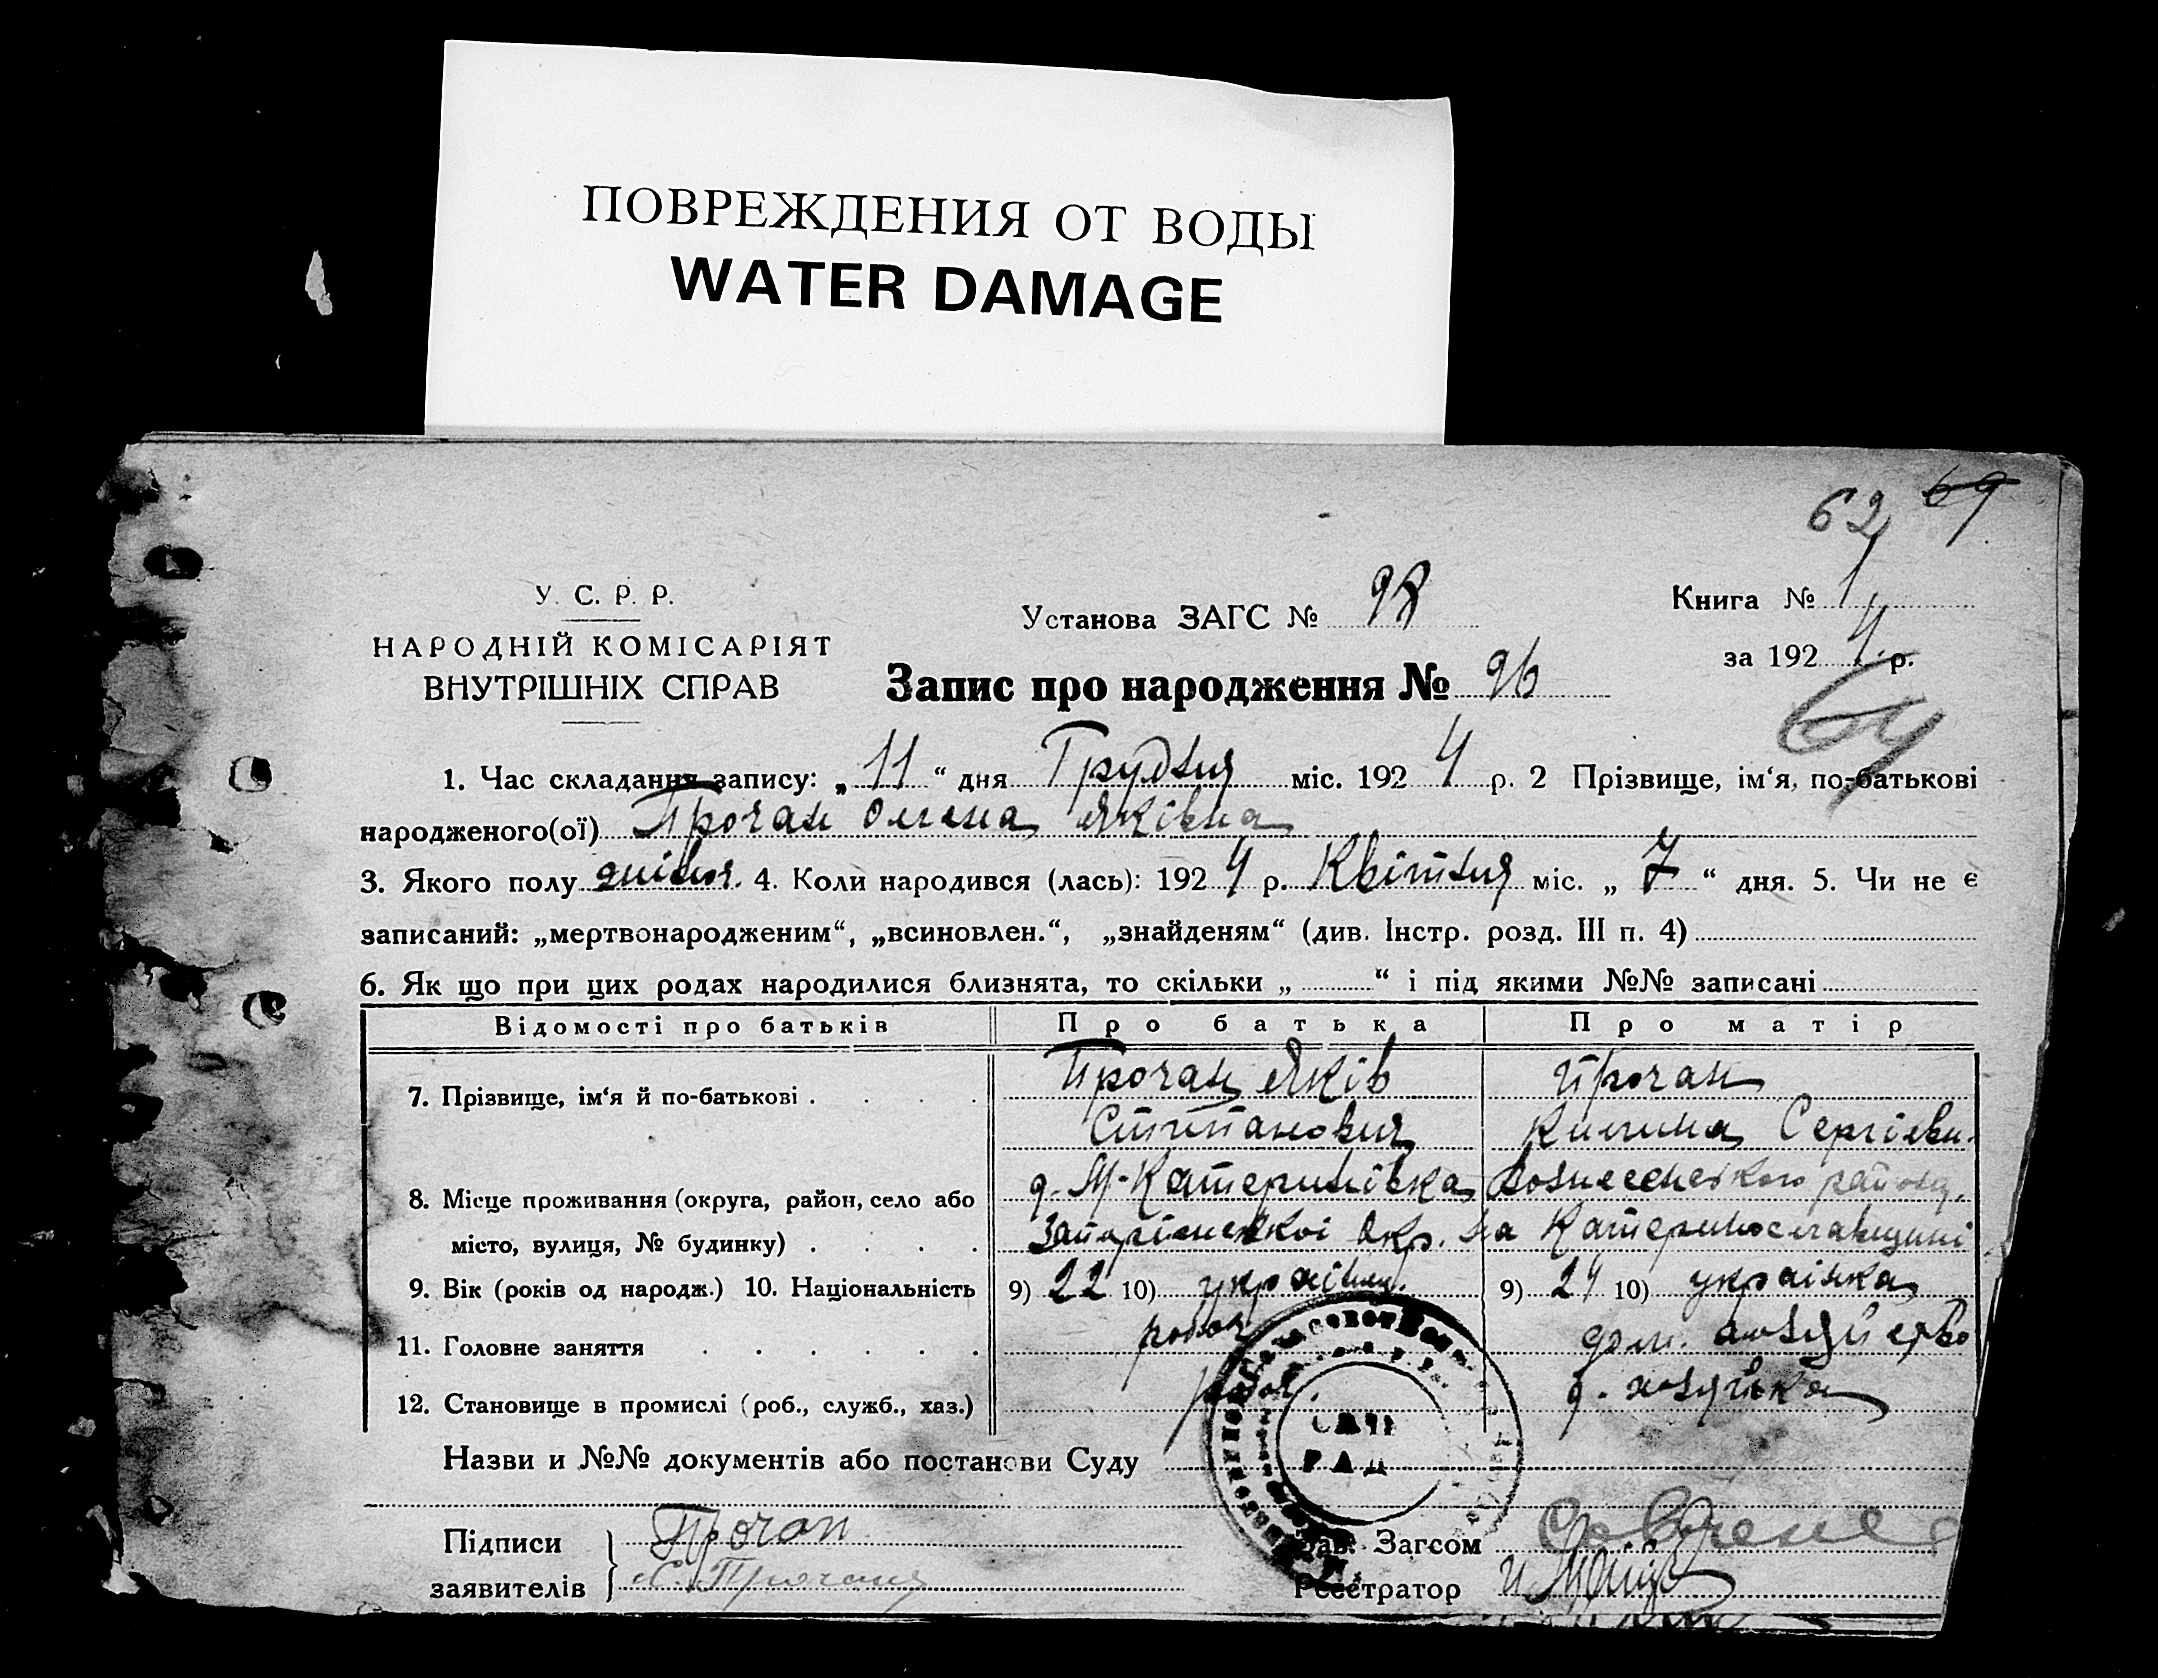 ПОВРЕЖДЕНИЯ ОТ ВОДЫ
WATER DAMAGE
62 69
У. С. Р. Р.
НАРОДНІЙ КОМІСАРІЯТ
ВНУТРІШНІХ СПРАВ
Установа ЗАГС № 98
Книга № 1
за 1924 р.
64
Запис про народження № 96
1. Час складання запису: „11“ дня Грудня міс. 1924 р. 2 Прізвище, ім‘я, по-батькові
народженого(ої) Прочан Олена Яківна
3. Якого полу жіноч. 4. Коли народився (лась): 1924 р. Квітня міс. „7“ дня. 5. Чи не є
записаний: „мертвонародженим“, „всиновлен.“, „знайденям“ (див. Інстр. розд. III п. 4)
6. Як що при цих родах народилися близнята, то скільки „ “ і під якими №№ записані
Відомості про батьків Про батька Про матір
7. Прізвище, ім‘я й по-батькові Прочан Яків Прочан
Степанович Килина Сергіевн.
8. Місце проживання (округа, район, село або д. М-Катеринівка Вознесенського району,
місто, вулиця, № будинку) Запоріжської Окр. на Катеринославщині
9. Вік (років од народж.) 10. Національність 9) 22 10) українец. 9) 24 10) українка
11. Головне заняття робоч дом. хозяйство
12. Становище в промислі (роб., служб., хаз.) робоч. д. хозяйка
Назви и №№ документів або постанови Суду
Підписи Прочан
заявителів Прочан
Зав. Загсом
Реєстратор